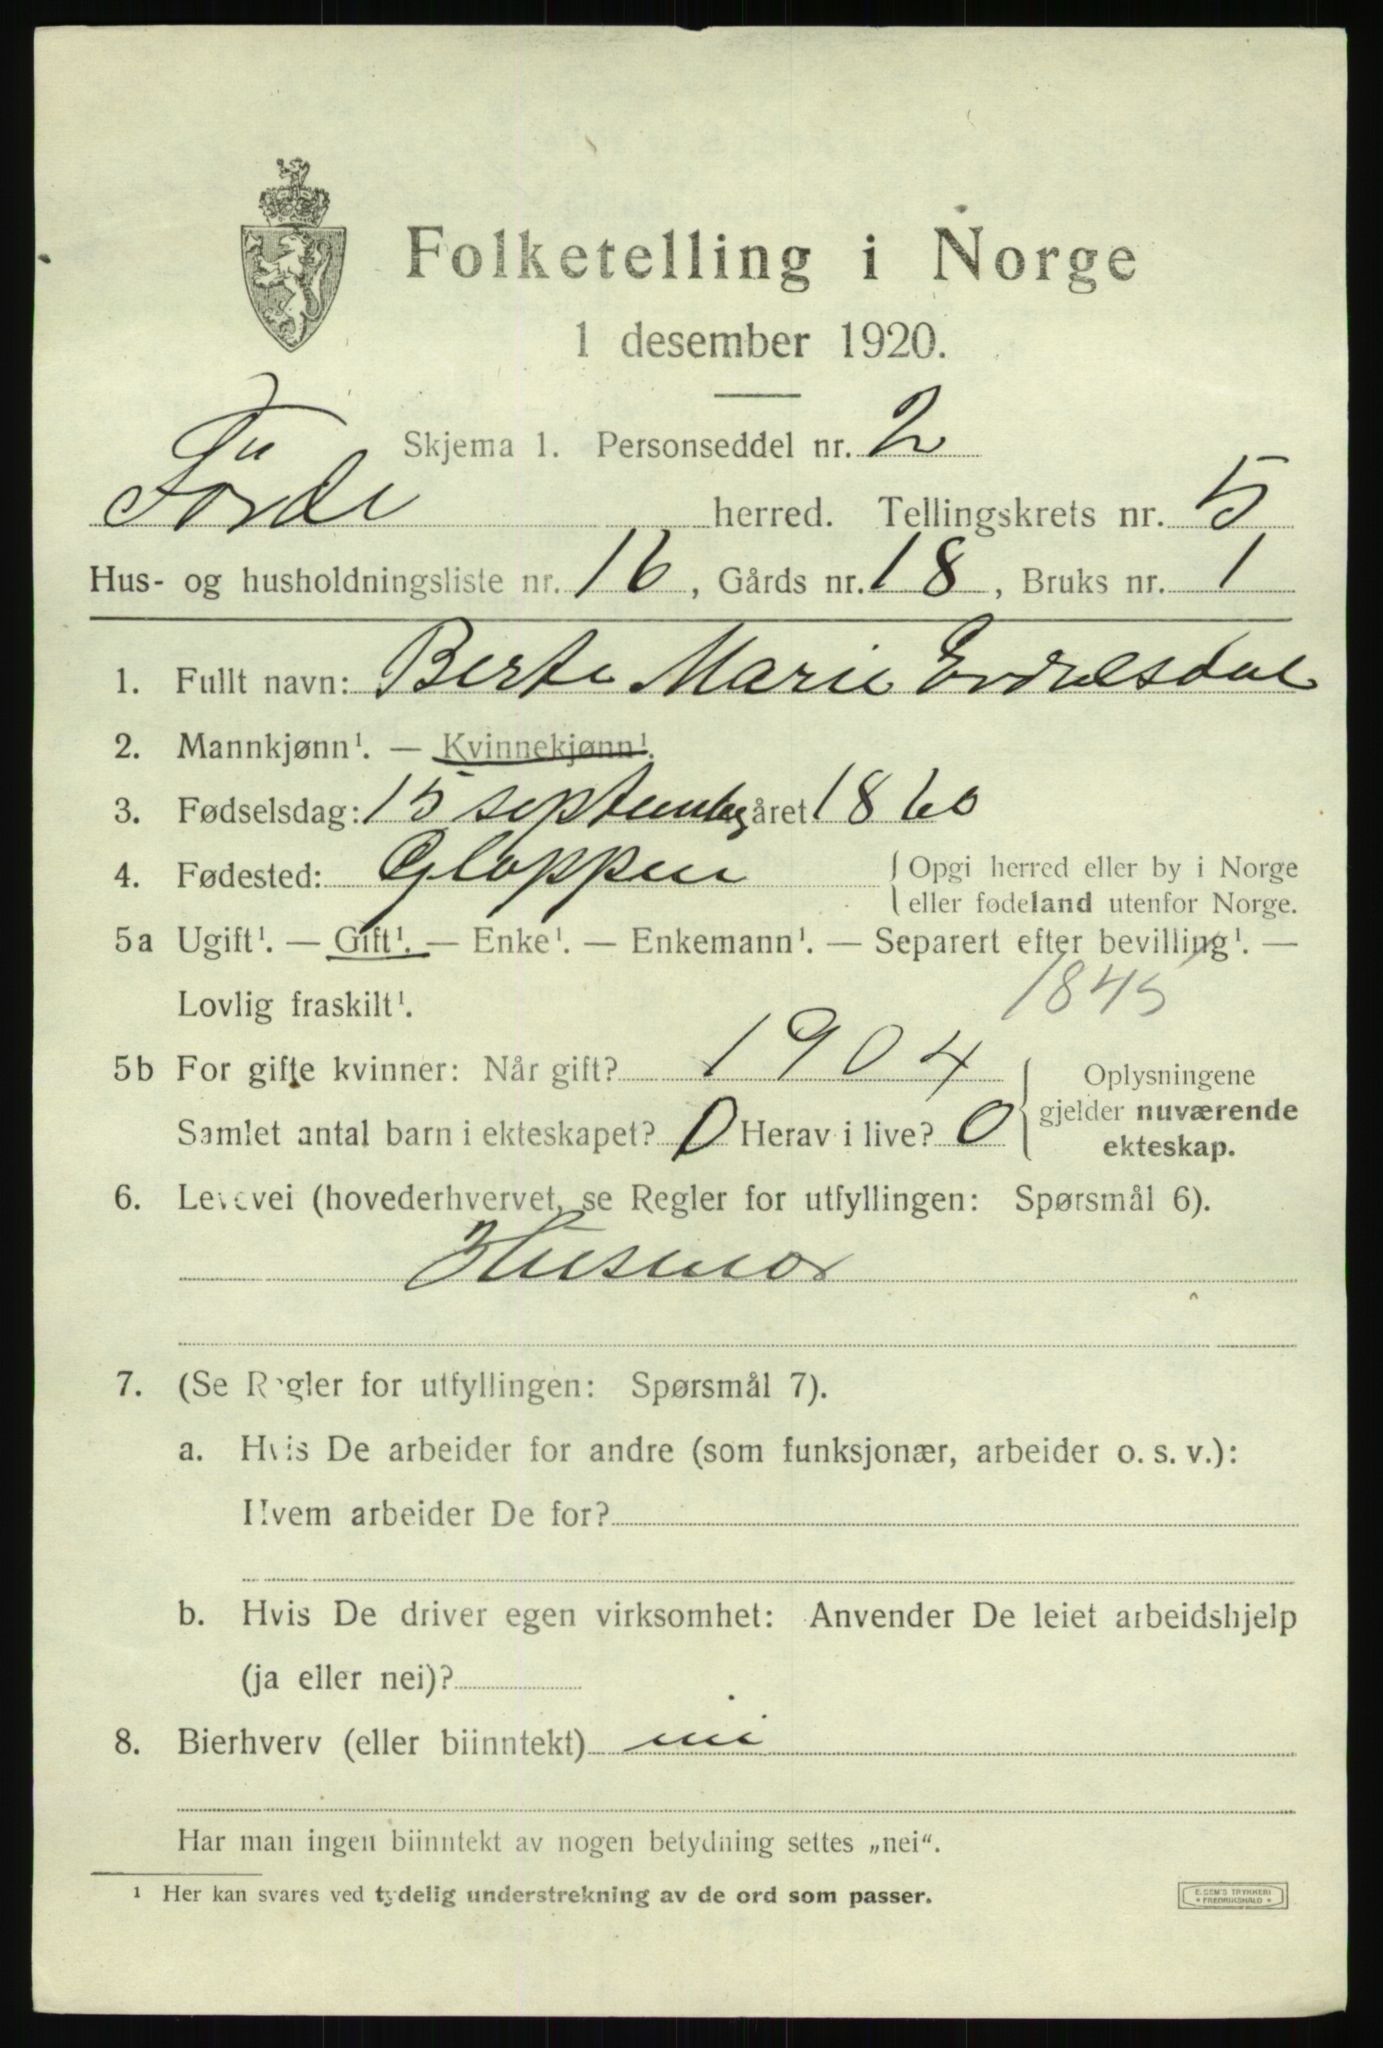 Folketelling i Norge
1 desember 1920.
Skjema 1. Personseddel nr. 2
Förde herred. Tellingskrets nr. 5
Hus- og husholdningsliste nr. 16, Gårds nr. 18, Bruks nr. 1
1. Fullt navn: Berte Marie
2. Mannkjønn¹. — Kvinnekjønn¹.
3. Fødselsdag: 15 september året 1860
4. Fødested: Gloppen {Opgi herred eller by i Norge
eller fødeland utenfor Norge.
5a Ugift¹. — Gift¹. — Enke¹. — Enkemann¹. — Separert efter bevilling¹. —
Lovlig fraskilt¹. 1845
5b For gifte kvinner: Når gift? 1904 { Oplysningene
gjelder nuværende
Samlet antal barn i ekteskapet? 0 Herav i live? 0
ekteskap.
6. Levevei (hovederhvervet, se Regler for utfyllingen: Spørsmål 6).
Husmor
7. (Se Regler for utfyllingen: Spørsmål 7).
a. Hvis De arbeider for andre (som funksjonær, arbeider o. s. v.):
Hvem arbeider De for?
b. Hvis De driver egen virksomhet: Anvender De leiet arbeidshjelp
(ja eller nei)?
8. Bierhverv (eller biinntekt) nei
Har man ingen biinntekt av nogen betydning settes „nei“.
¹ Her kan svares ved tydelig understrekning av de ord som passer.
E. SEM'S TRYKKERI
* FREDRIKSHALD *